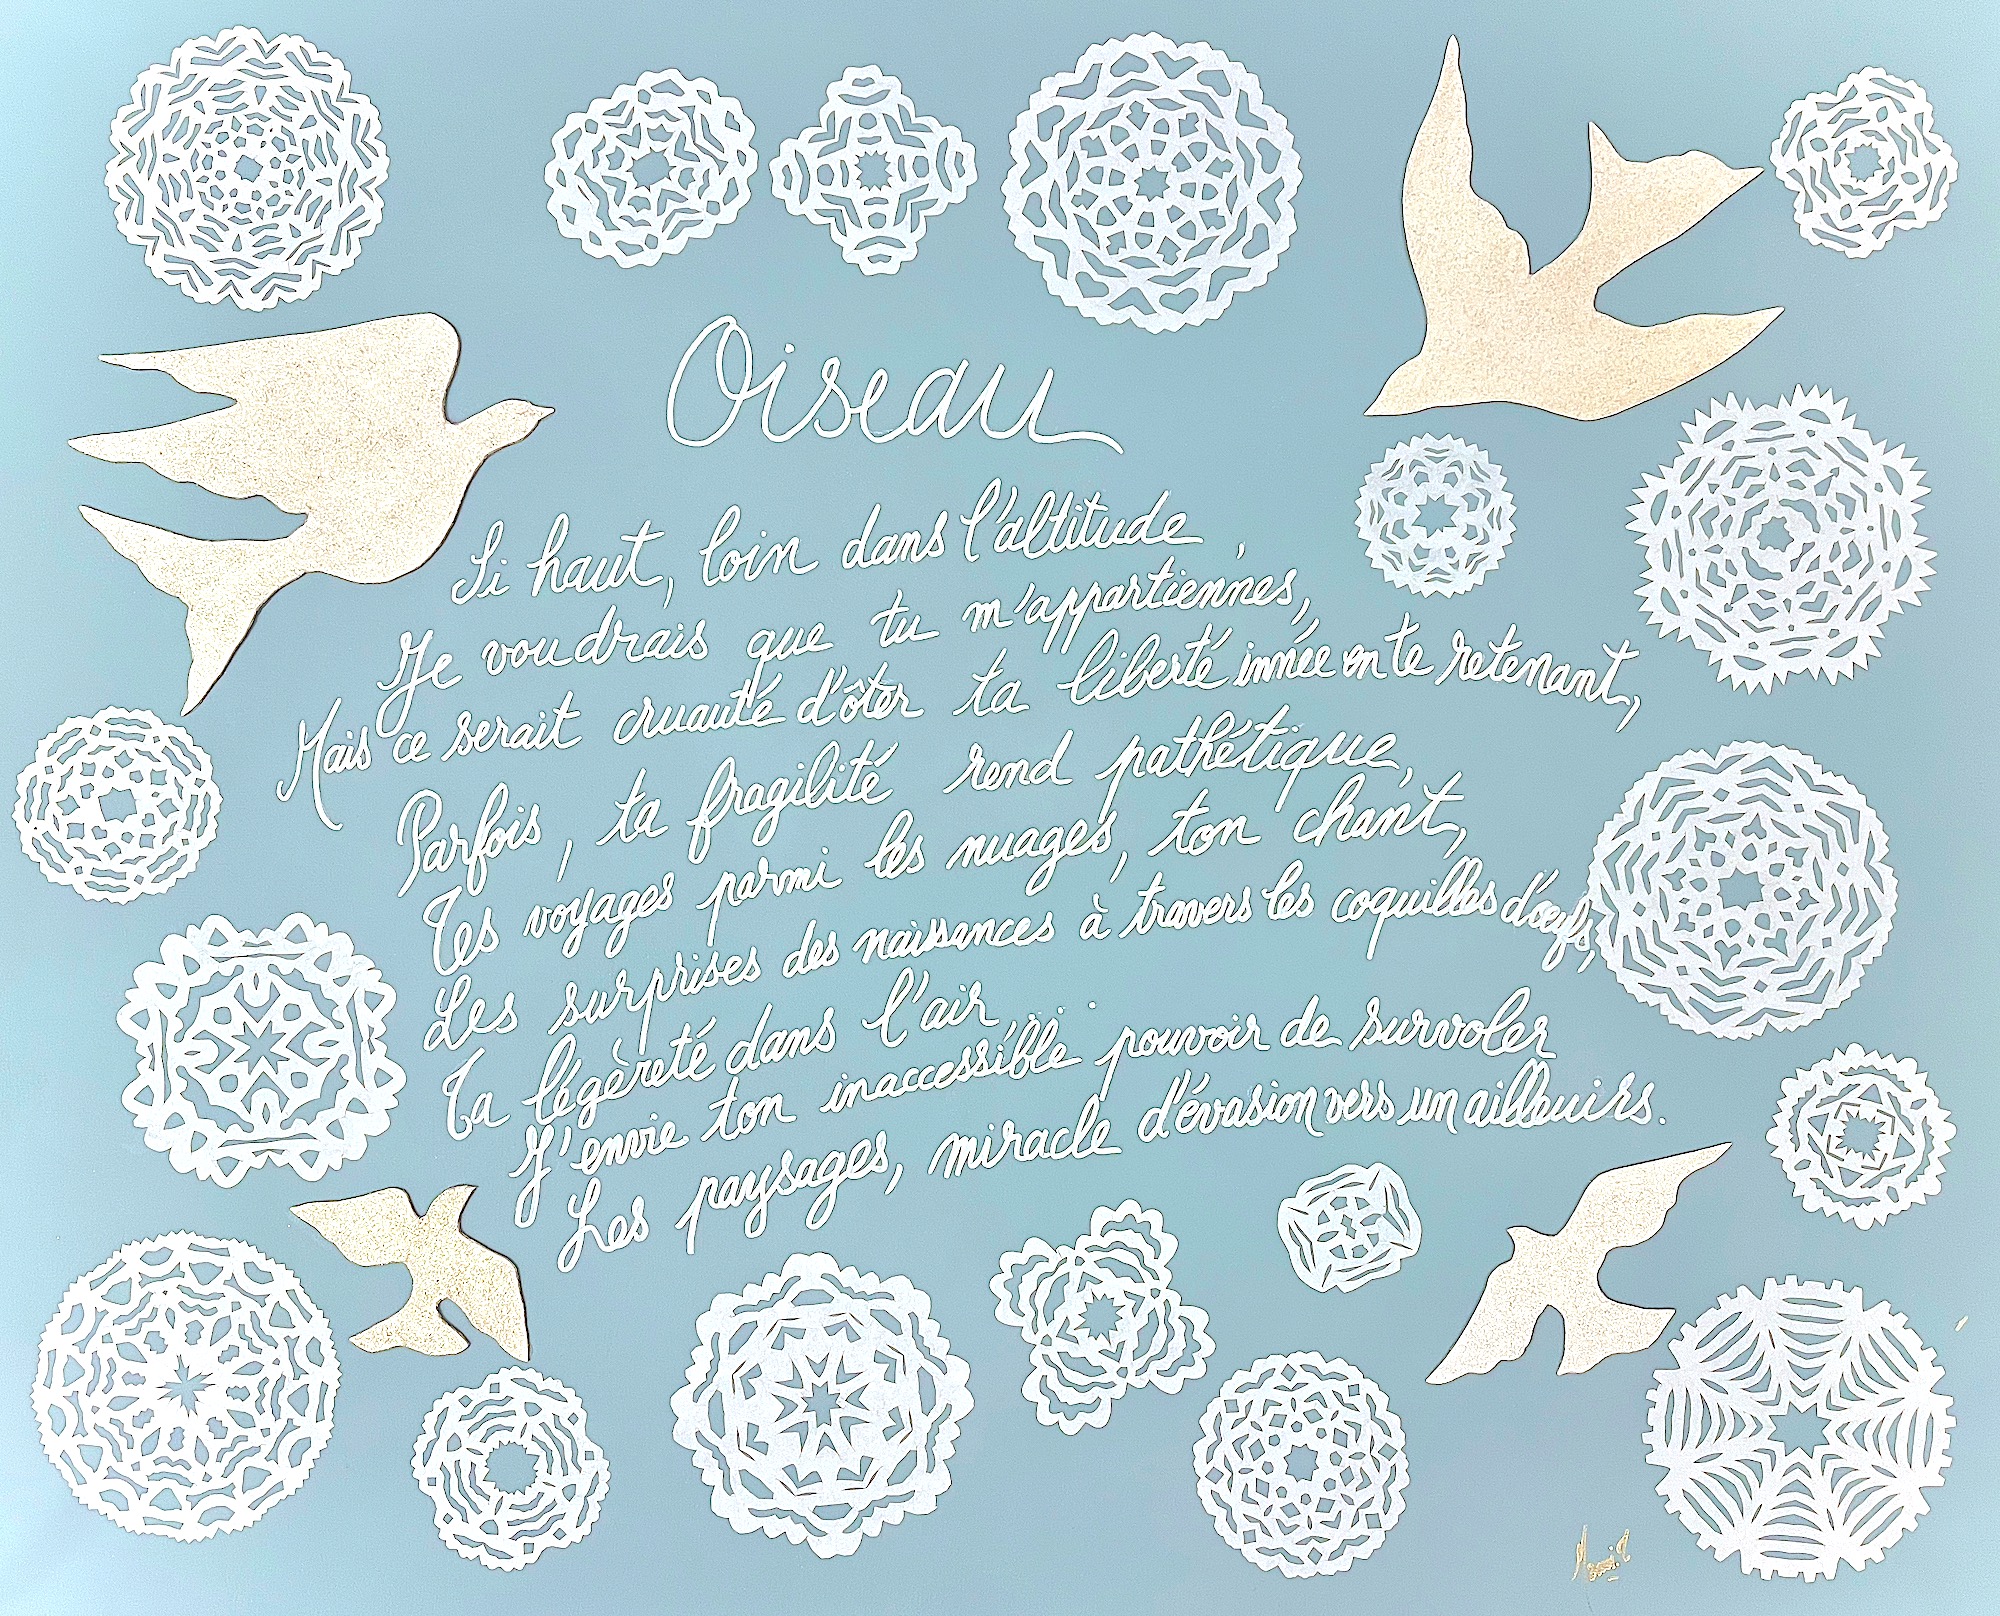 Oiseau
Si haut, loin dans l'altitude,
Je voudrais que tu m'appartiennes,
Mais ce serait cruauté d'ôter ta liberté innée en te retenant,
Parfois, ta fragilité rend pathétique,
Tes voyages parmi les nuages, ton chant,
Les surprises des naissances à travers les coquilles d'œufs,
Ta légèreté dans l'air...
J'envie ton inaccessible pouvoir de survoler
Les paysages, miracle d'évasion vers un ailleurs.